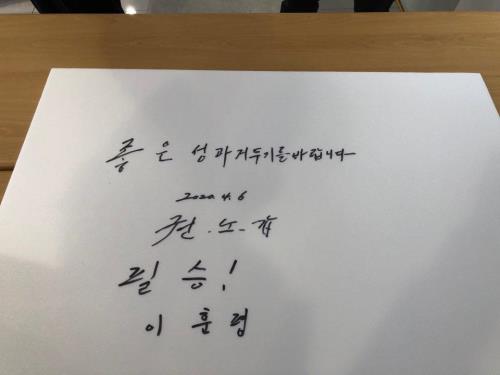 좋은 성과 거두기를 바랍니다
2020. 4. 6
권.노.갑
필 승!
이 훈 평